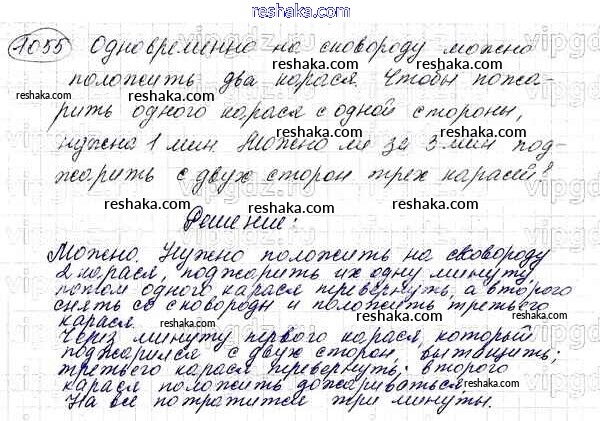 reshaka.com
1055 Одновременно на сковороду можно
положить два карася. Чтобы пожа-
рить одного карася с одной стороны,
нужна 1 мин. Можно ли за 3 мин под-
жарить с двух сторон трех карасей?
Решение:
Можно. Нужно положить на сковороду
2 карася, поджарить их одну минуту,
потом одного карася перевернуть, а второго
снять со сковороды и положить третьего
карася.
Через минуту первого карася, который
поджарился с двух сторон, вытащить;
третьего карася перевернуть; второго
карася положить дожариваться.
На всё потратится три минуты.